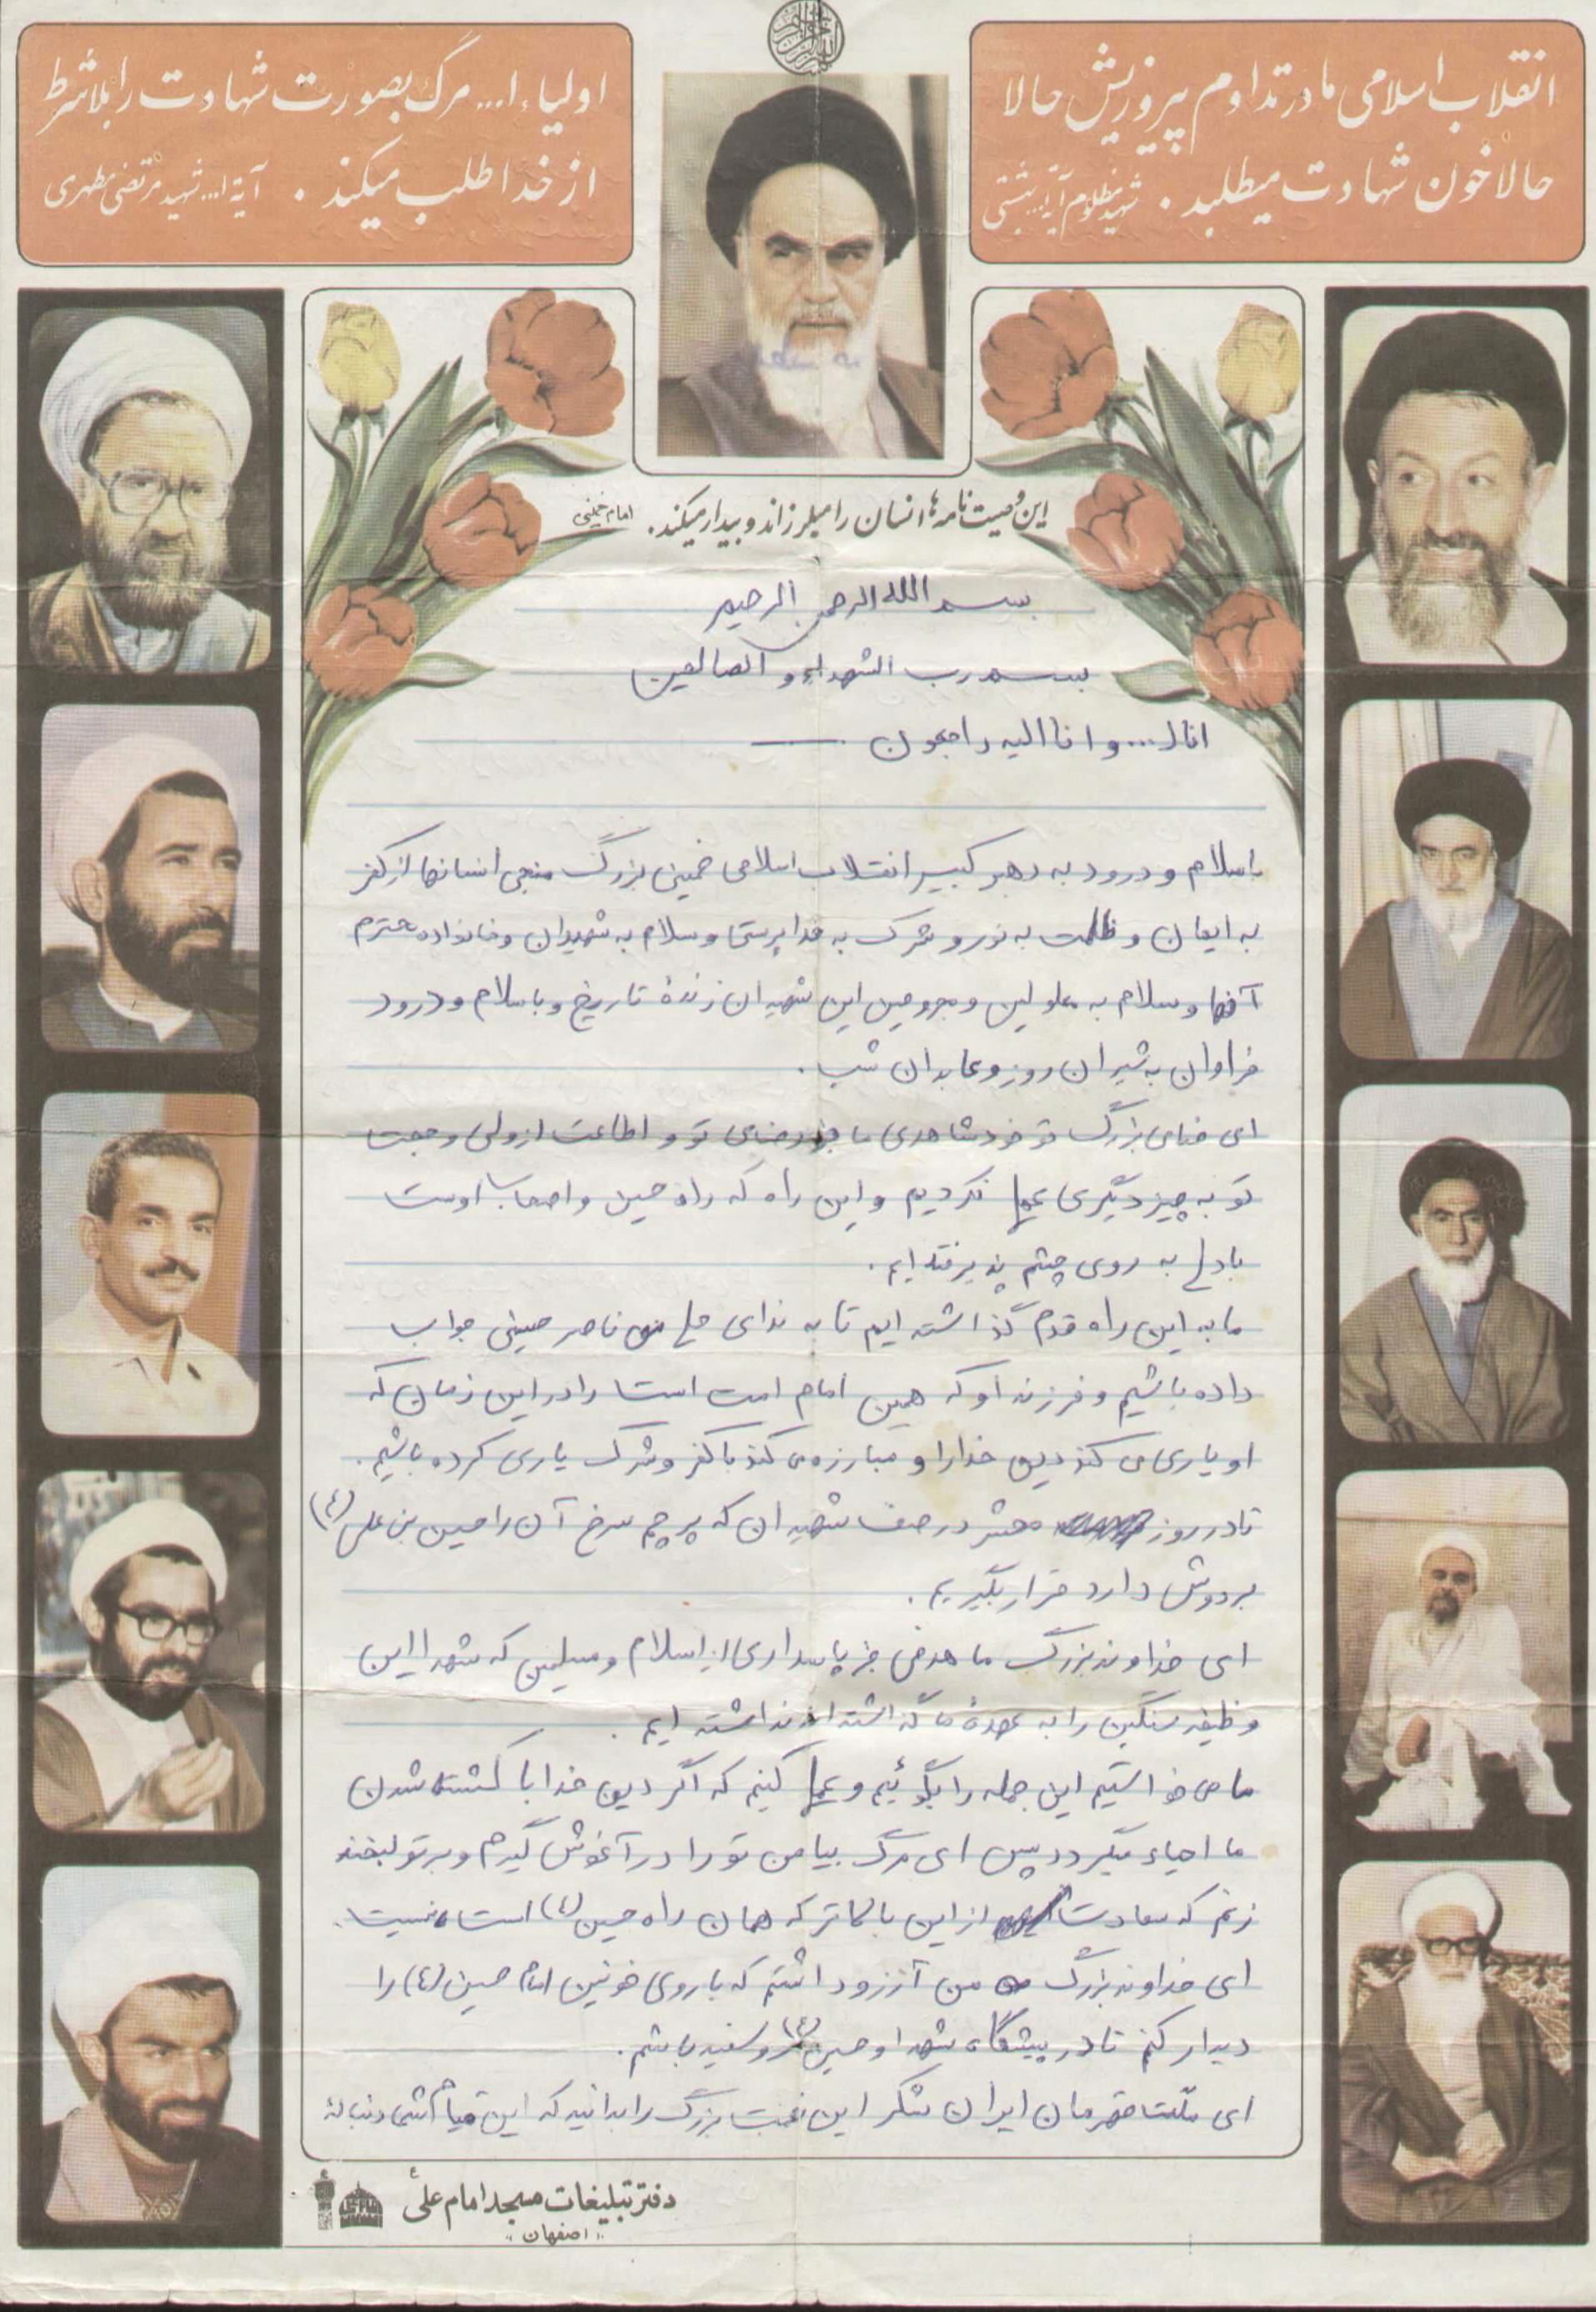 انقلاب اسلامی ما در تداوم پیروزیش حالا
حالا خون شهادت میطلبد . شهید مظلوم آیة ا... بهشتی
اولیاء ا... مرگ بصورت شهادت را بلاشرط
از خدا طلب میکند . آیة ا... شهید مرتضی مطهری
این وصیت نامه ها انسان را میلرزاند و بیدار میکند . امام خمینی
بسم الله الرحمن الرحیم
بسم رب الشهداء و الصالحین
انا لـ... و انا الیه راجعون
باسلام و درود به رهبر کبیر انقلاب اسلامی خمینی بزرگ منجی انسانها از کفر
به ایمان و ظلمت به نور و شرک به خداپرستی و سلام به شهیدان و خانواده محترم
آنها و سلام به معلولین و مجروحین این شهیدان زندهٔ تاریخ و با سلام و درود
فراوان به شیران روز و عابدان شب .
ای خدای بزرگ تو خود شاهدی ما جز رضای تو و اطاعت از ولی و حجت
تو به چیز دیگری عمل نکردیم و این راه که راه حسین و اصحاب اوست
به روی چشم پذیرفته ایم .
ما به این راه قدم گذاشته ایم تا به ندای هل من ناصر حسینی جواب
داده باشیم و فرزند او که همین امام امت است را در این زمان که
او یاری می کند دین خدا را و مبارزه می کند با کفر و شرک یاری کرده باشیم .
تا در روز محشر در صف شهیدان که پرچم سرخ آن را حسین بن علی (ع)
بر دوش دارد قرار بگیریم .
ای خداوند بزرگ ما هدفی جز پاسداری از اسلام و مسلمین که شهدا این
وظیفه سنگین را به عهدهٔ ما گذاشته اند نداشته ایم .
ما می خواستیم این جمله را بگوئیم و عمل کنیم که اگر دین خدا با کشته شدن
ما احیاء میگردد پس ای مرگ بیا من تو را در آغوش گیرم و بر تو لبخند
زنم که سعادت از این بالاتر که همان راه حسین (ع) است نیست .
ای خداوند بزرگ من آرزو داشتم که با روی خونین امام حسین (ع) را
دیدار کنم تا در پیشگاه شهدا و حسین (ع) رو سفید باشم .
ای ملت قهرمان ایران شکر این نعمت بزرگ را بدانید که این قیام شما دنبالهٔ
دفتر تبلیغات مسجد امام علی ع
"اصفهان"